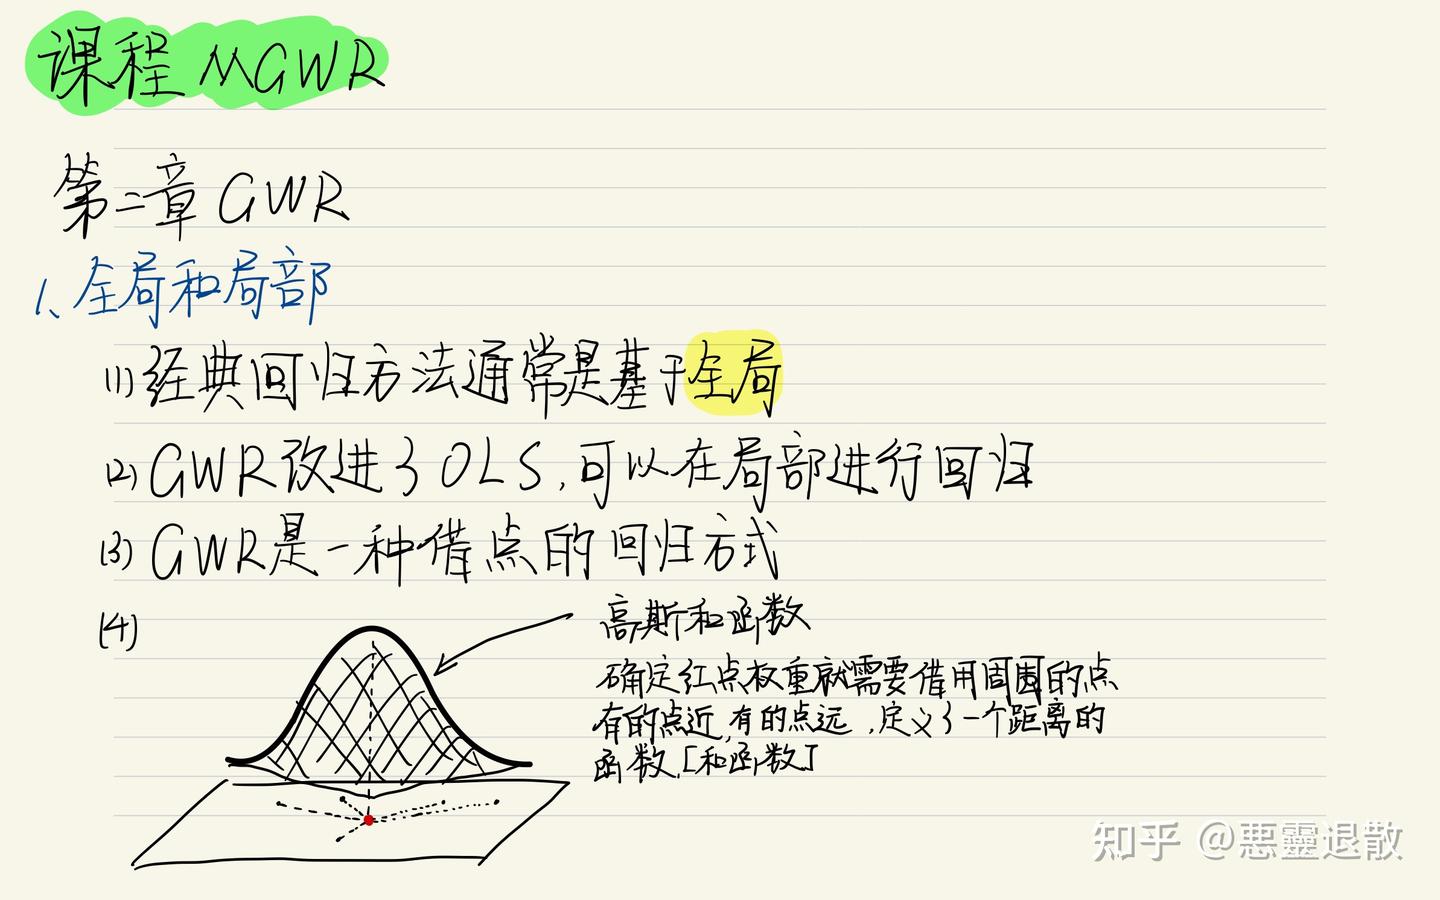 课程 MGWR
第二章 GWR
1、全局和局部
(1) 经典回归方法通常是基于全局
(2) GWR改进了OLS,可以在局部进行回归
(3) GWR是一种借点的回归方式
(4)
高斯和函数
确定红点权重就需要借用周围的点
有的点近,有的点远,定义了一个距离的
函数,[和函数]
知乎 @恶靈退散